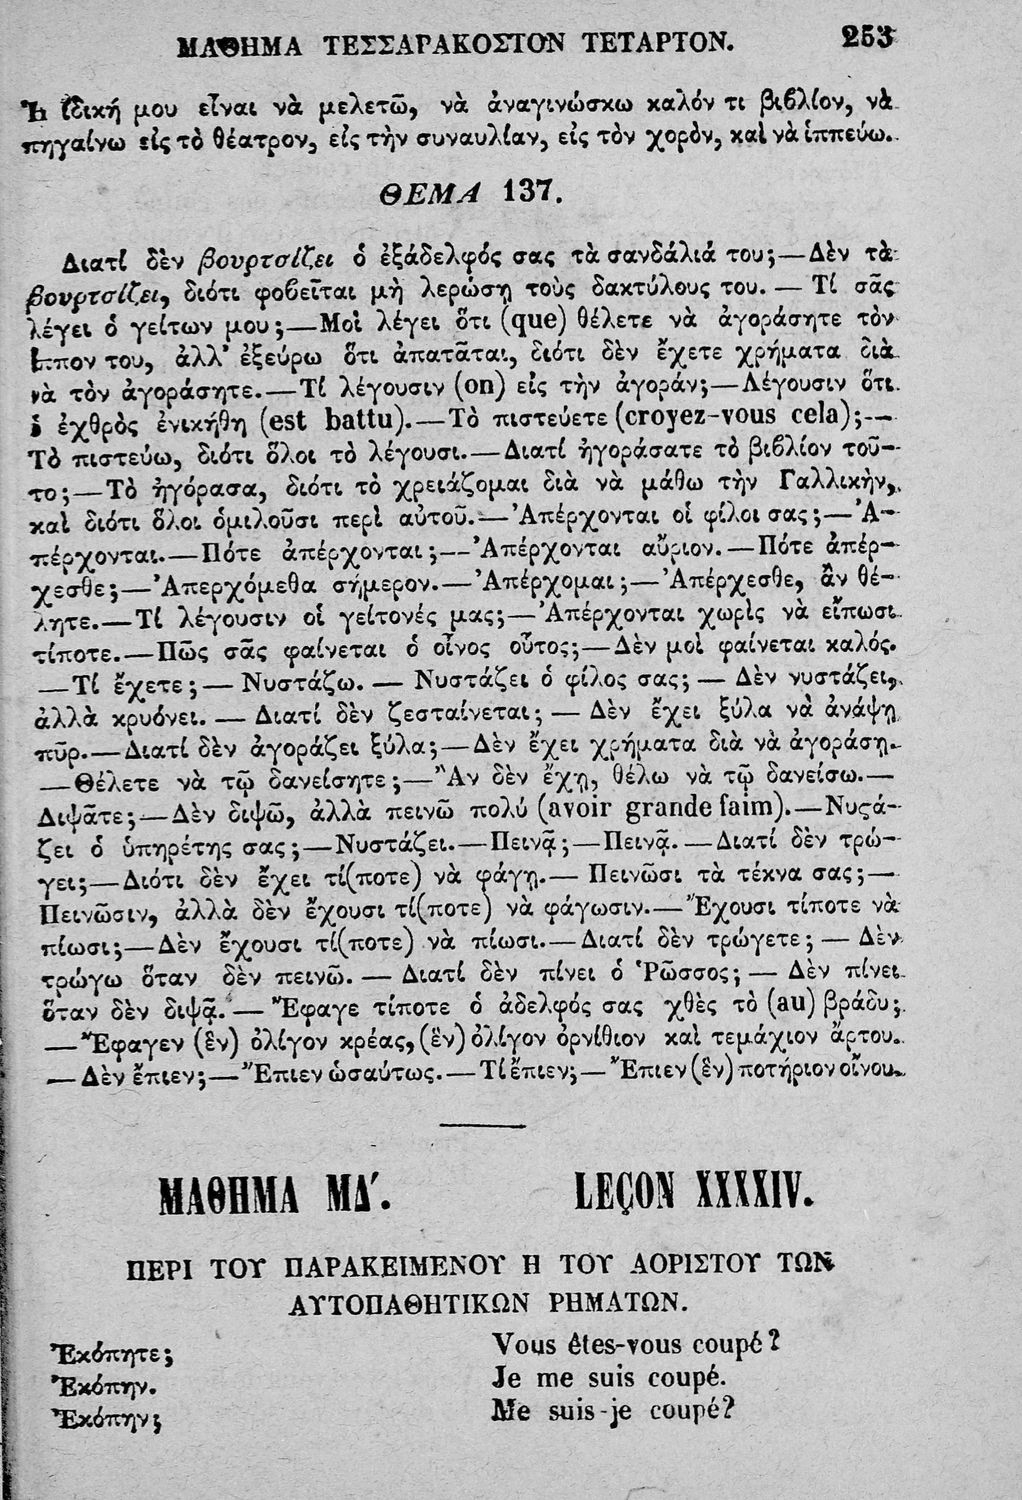 ΜΑΘΗΜΑ ΤΕΣΣΑΡΑΚΟΣΤΟΝ ΤΕΤΑΡΤΟΝ. 253
Ἡ ἰδική μου εἶναι νὰ μελετῶ, νὰ ἀναγινώσκω καλόν τι βιβλίον, νὰ
πηγαίνω εἰς τὸ θέατρον, εἰς τὴν συναυλίαν, εἰς τὸν χορὸν, καὶ νὰ ἱππεύω.
ΘΕΜΑ 137.
Διατί δὲν βουρτσίζει ὁ ἐξάδελφός σας τὰ σανδάλιά του;—Δὲν τὰ
βουρτσίζει, διότι φοβεῖται μὴ λερώσῃ τοὺς δακτύλους του. — Τί σᾶς
λέγει ὁ γείτων μου;—Μοὶ λέγει ὅτι (que) θέλετε νὰ ἀγοράσητε τὸν
ἵππον του, ἀλλ' ἐξεύρω ὅτι ἀπατᾶται, διότι δὲν ἔχετε χρήματα διὰ
νὰ τὸν ἀγοράσητε.—Τί λέγουσιν (on) εἰς τὴν ἀγοράν;—Λέγουσιν ὅτι
ὁ ἐχθρὸς ἐνικήθη (est battu).—Τὸ πιστεύετε (croyez-vous cela);—
Τὸ πιστεύω, διότι ὅλοι τὸ λέγουσι.—Διατί ἠγοράσατε τὸ βιβλίον τοῦ-
το;—Τὸ ἠγόρασα, διότι τὸ χρειάζομαι διὰ νὰ μάθω τὴν Γαλλικὴν,
καὶ διότι ὅλοι ὁμιλοῦσι περὶ αὐτοῦ.—Ἀπέρχονται οἱ φίλοι σας;—Ἀ-
πέρχονται.—Πότε ἀπέρχονται;—Ἀπέρχονται αὔριον.—Πότε ἀπέρ-
χεσθε;—Ἀπερχόμεθα σήμερον.—Ἀπέρχομαι;—Ἀπέρχεσθε, ἂν θέ-
λητε.—Τί λέγουσιν οἱ γείτονές μας;—Ἀπέρχονται χωρὶς νὰ εἴπωσι
τίποτε.—Πῶς σᾶς φαίνεται ὁ οἶνος οὗτος;—Δὲν μοὶ φαίνεται καλός.
—Τί ἔχετε;— Νυστάζω. — Νυστάζει ὁ φίλος σας; — Δὲν νυστάζει,
ἀλλὰ κρυόνει. — Διατί δὲν ζεσταίνεται; — Δὲν ἔχει ξύλα νὰ ἀνάψῃ
πῦρ.—Διατί δὲν ἀγοράζει ξύλα;—Δὲν ἔχει χρήματα διὰ νὰ ἀγοράσῃ.
—Θέλετε νὰ τῷ δανείσητε;—Ἂν δὲν ἔχῃ, θέλω νὰ τῷ δανείσω.—
Διψᾶτε;—Δὲν διψῶ, ἀλλὰ πεινῶ πολύ (avoir grande faim).—Νυςά-
ζει ὁ ὑπηρέτης σας;—Νυστάζει.—Πεινᾷ;—Πεινᾷ.—Διατί δὲν τρώ-
γει;—Διότι δὲν ἔχει τί(ποτε) νὰ φάγῃ.— Πεινῶσι τὰ τέκνα σας;—
Πεινῶσιν, ἀλλὰ δὲν ἔχουσι τί(ποτε) νὰ φάγωσιν.—Ἔχουσι τίποτε νὰ
πίωσι;—Δὲν ἔχουσι τί(ποτε) νὰ πίωσι.—Διατί δὲν τρώγετε; — Δὲν
τρώγω ὅταν δὲν πεινῶ. — Διατί δὲν πίνει ὁ Ῥῶσσος; — Δὲν πίνει
ὅταν δὲν διψᾷ. — Ἔφαγε τίποτε ὁ ἀδελφός σας χθὲς τὸ (au) βράδυ;
—Ἔφαγεν (ἓν) ὀλίγον κρέας, (ἓν) ὀλίγον ὀρνίθιον καὶ τεμάχιον ἄρτου.
—Δὲν ἔπιεν;—Ἔπιεν ὡσαύτως.—Τί ἔπιεν;—Ἔπιεν (ἓν) ποτήριον οἴνου.
ΜΑΘΗΜΑ ΜΔ΄. LEÇON XXXXIV.
ΠΕΡΙ ΤΟΥ ΠΑΡΑΚΕΙΜΕΝΟΥ Η ΤΟΥ ΑΟΡΙΣΤΟΥ ΤΩΝ
ΑΥΤΟΠΑΘΗΤΙΚΩΝ ΡΗΜΑΤΩΝ.
Ἐκόπητε; Vous êtes-vous coupé?
Ἐκόπην. Je me suis coupé.
Ἐκόπην; Me suis-je coupé?